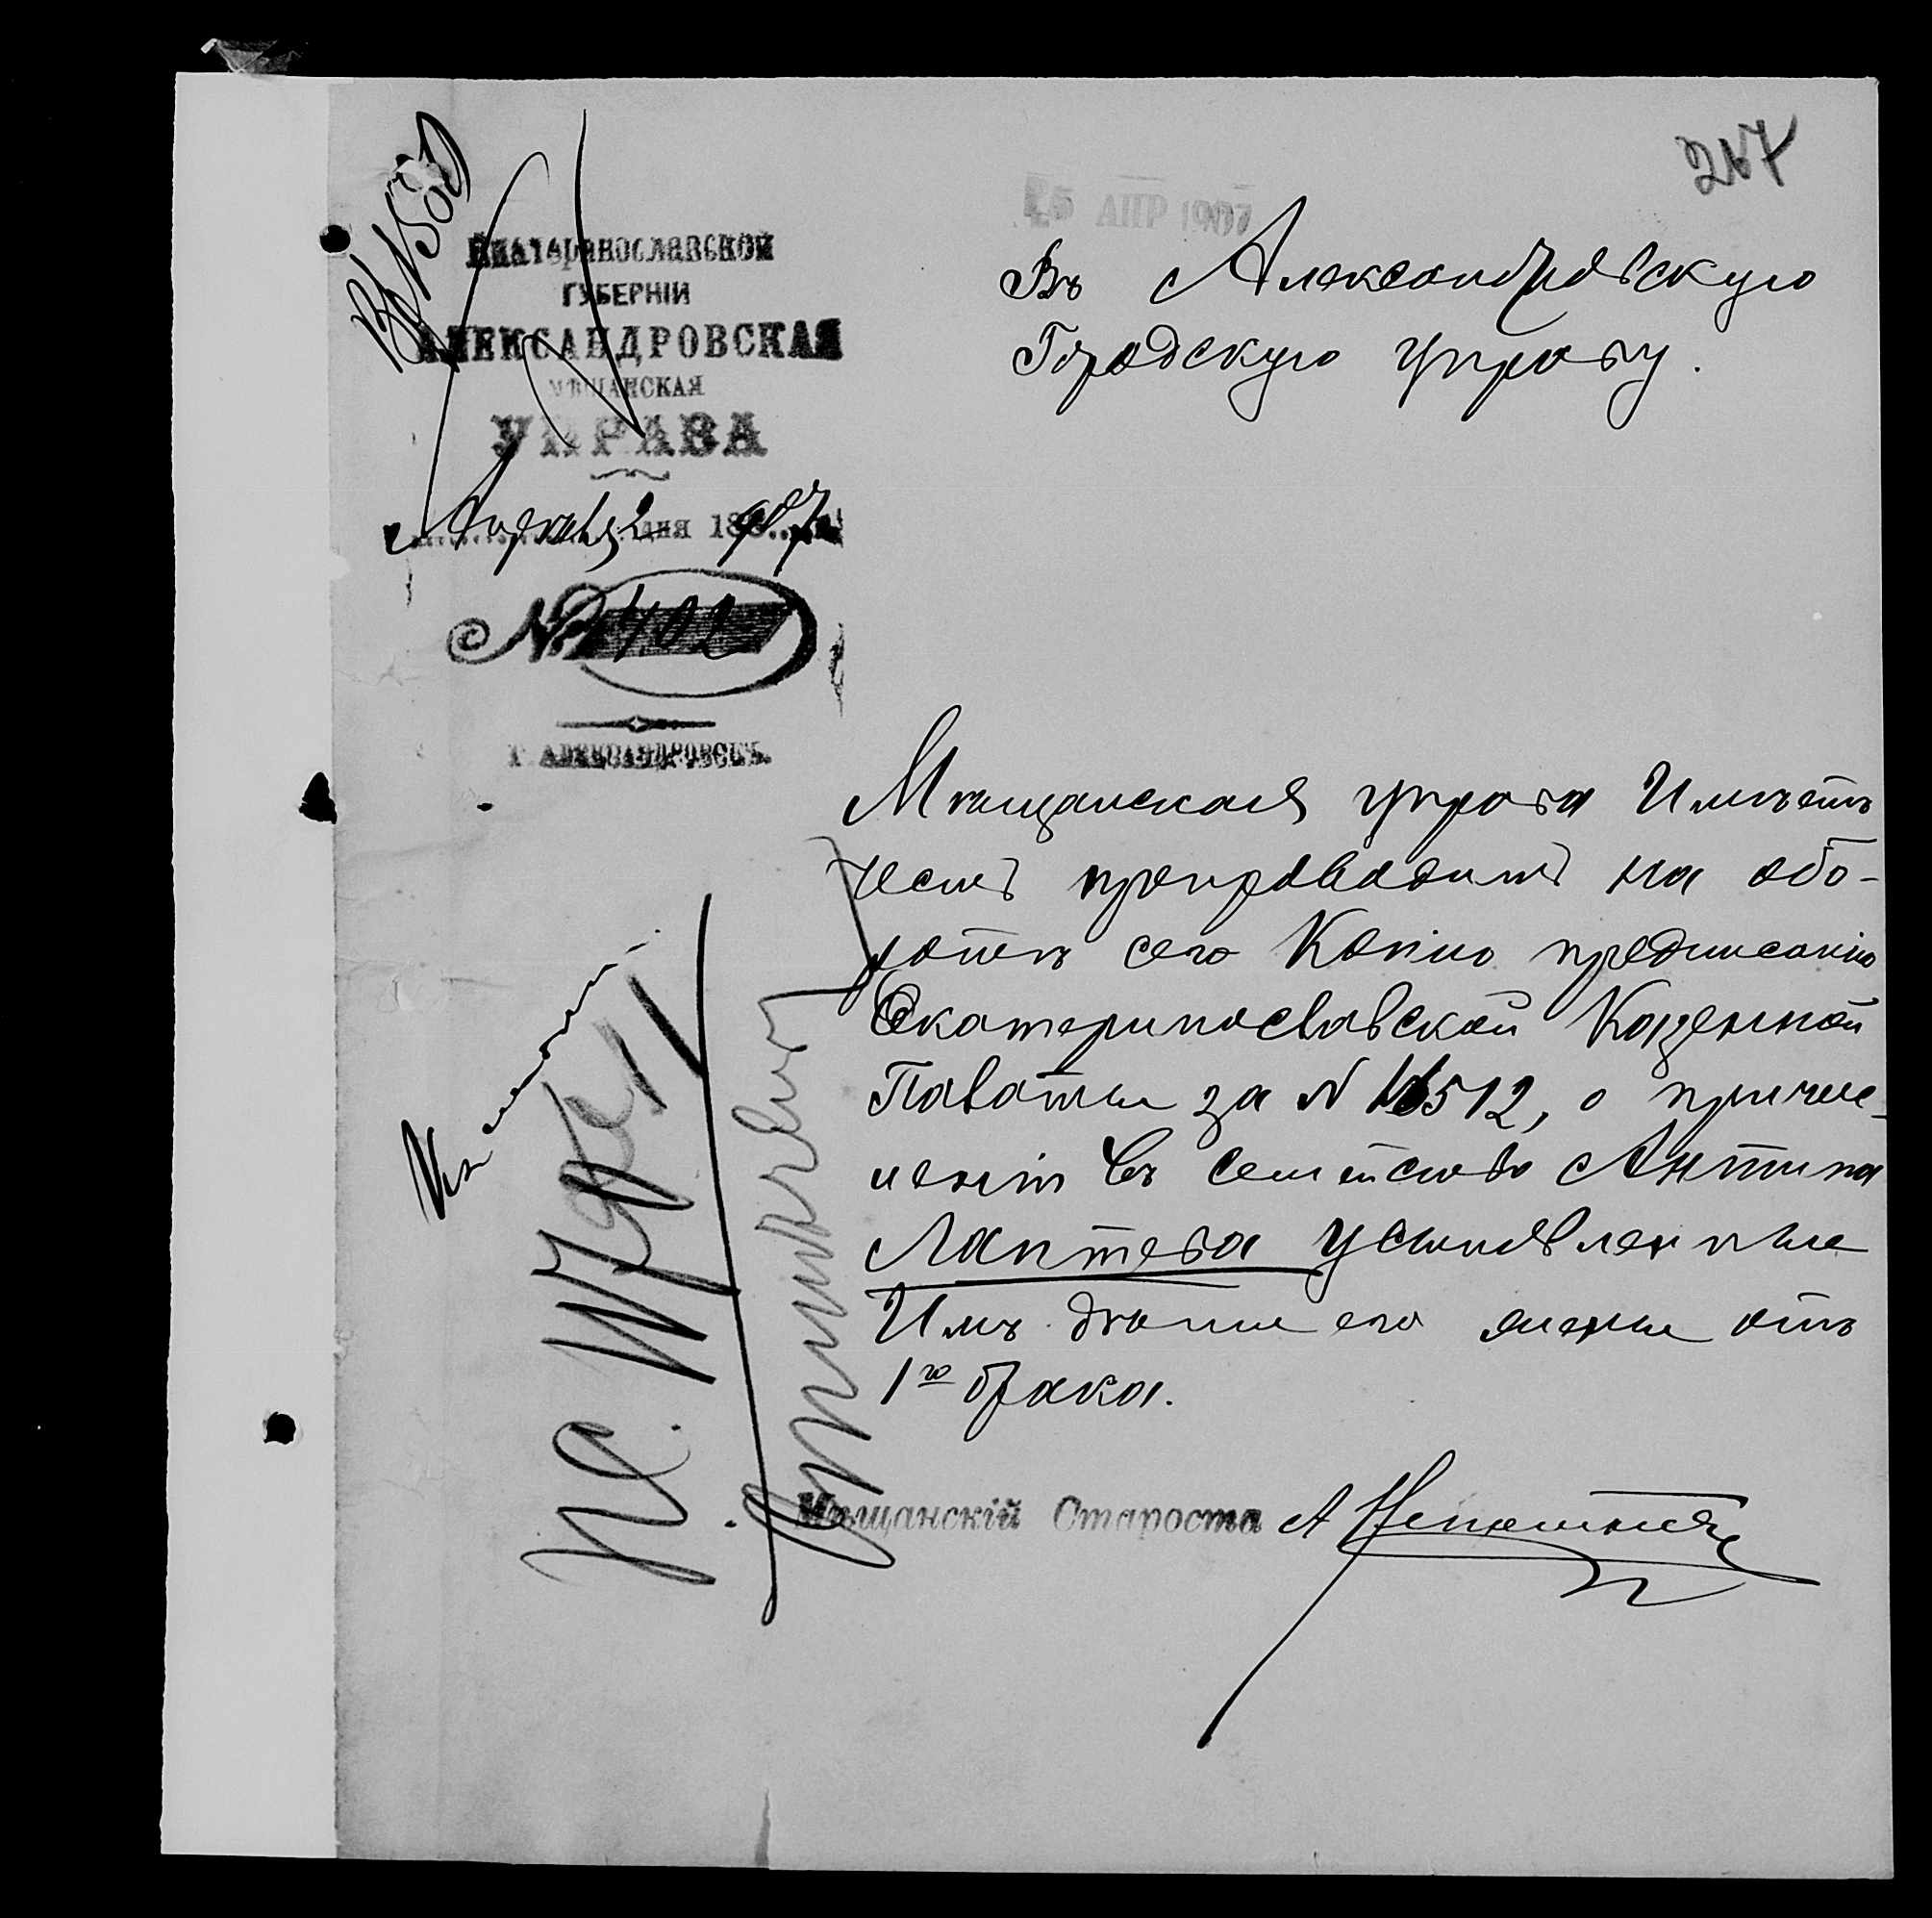 267
25 АПР 1907
Екатеринославской
ГУБЕРНІИ
АЛЕКСАНДРОВСКАЯ
МѢЩАНСКАЯ
УПРАВА
Апрѣля 2 дня 1907
№ 402
Г. АЛЕКСАНДРОВСКЪ.
Въ Александровскую
Городскую управу.
Мѣщанская управа Имѣетъ
честь препроводить на обо-
ротѣ сего Копію предписанію
Екатеринославской Казенной
Палаты за N 16512, о причис-
леніи въ семейство Антипа
Лаптева усыновленные
Имъ дѣти его жены отъ
1го брака.
Мѣщанскій Староста А